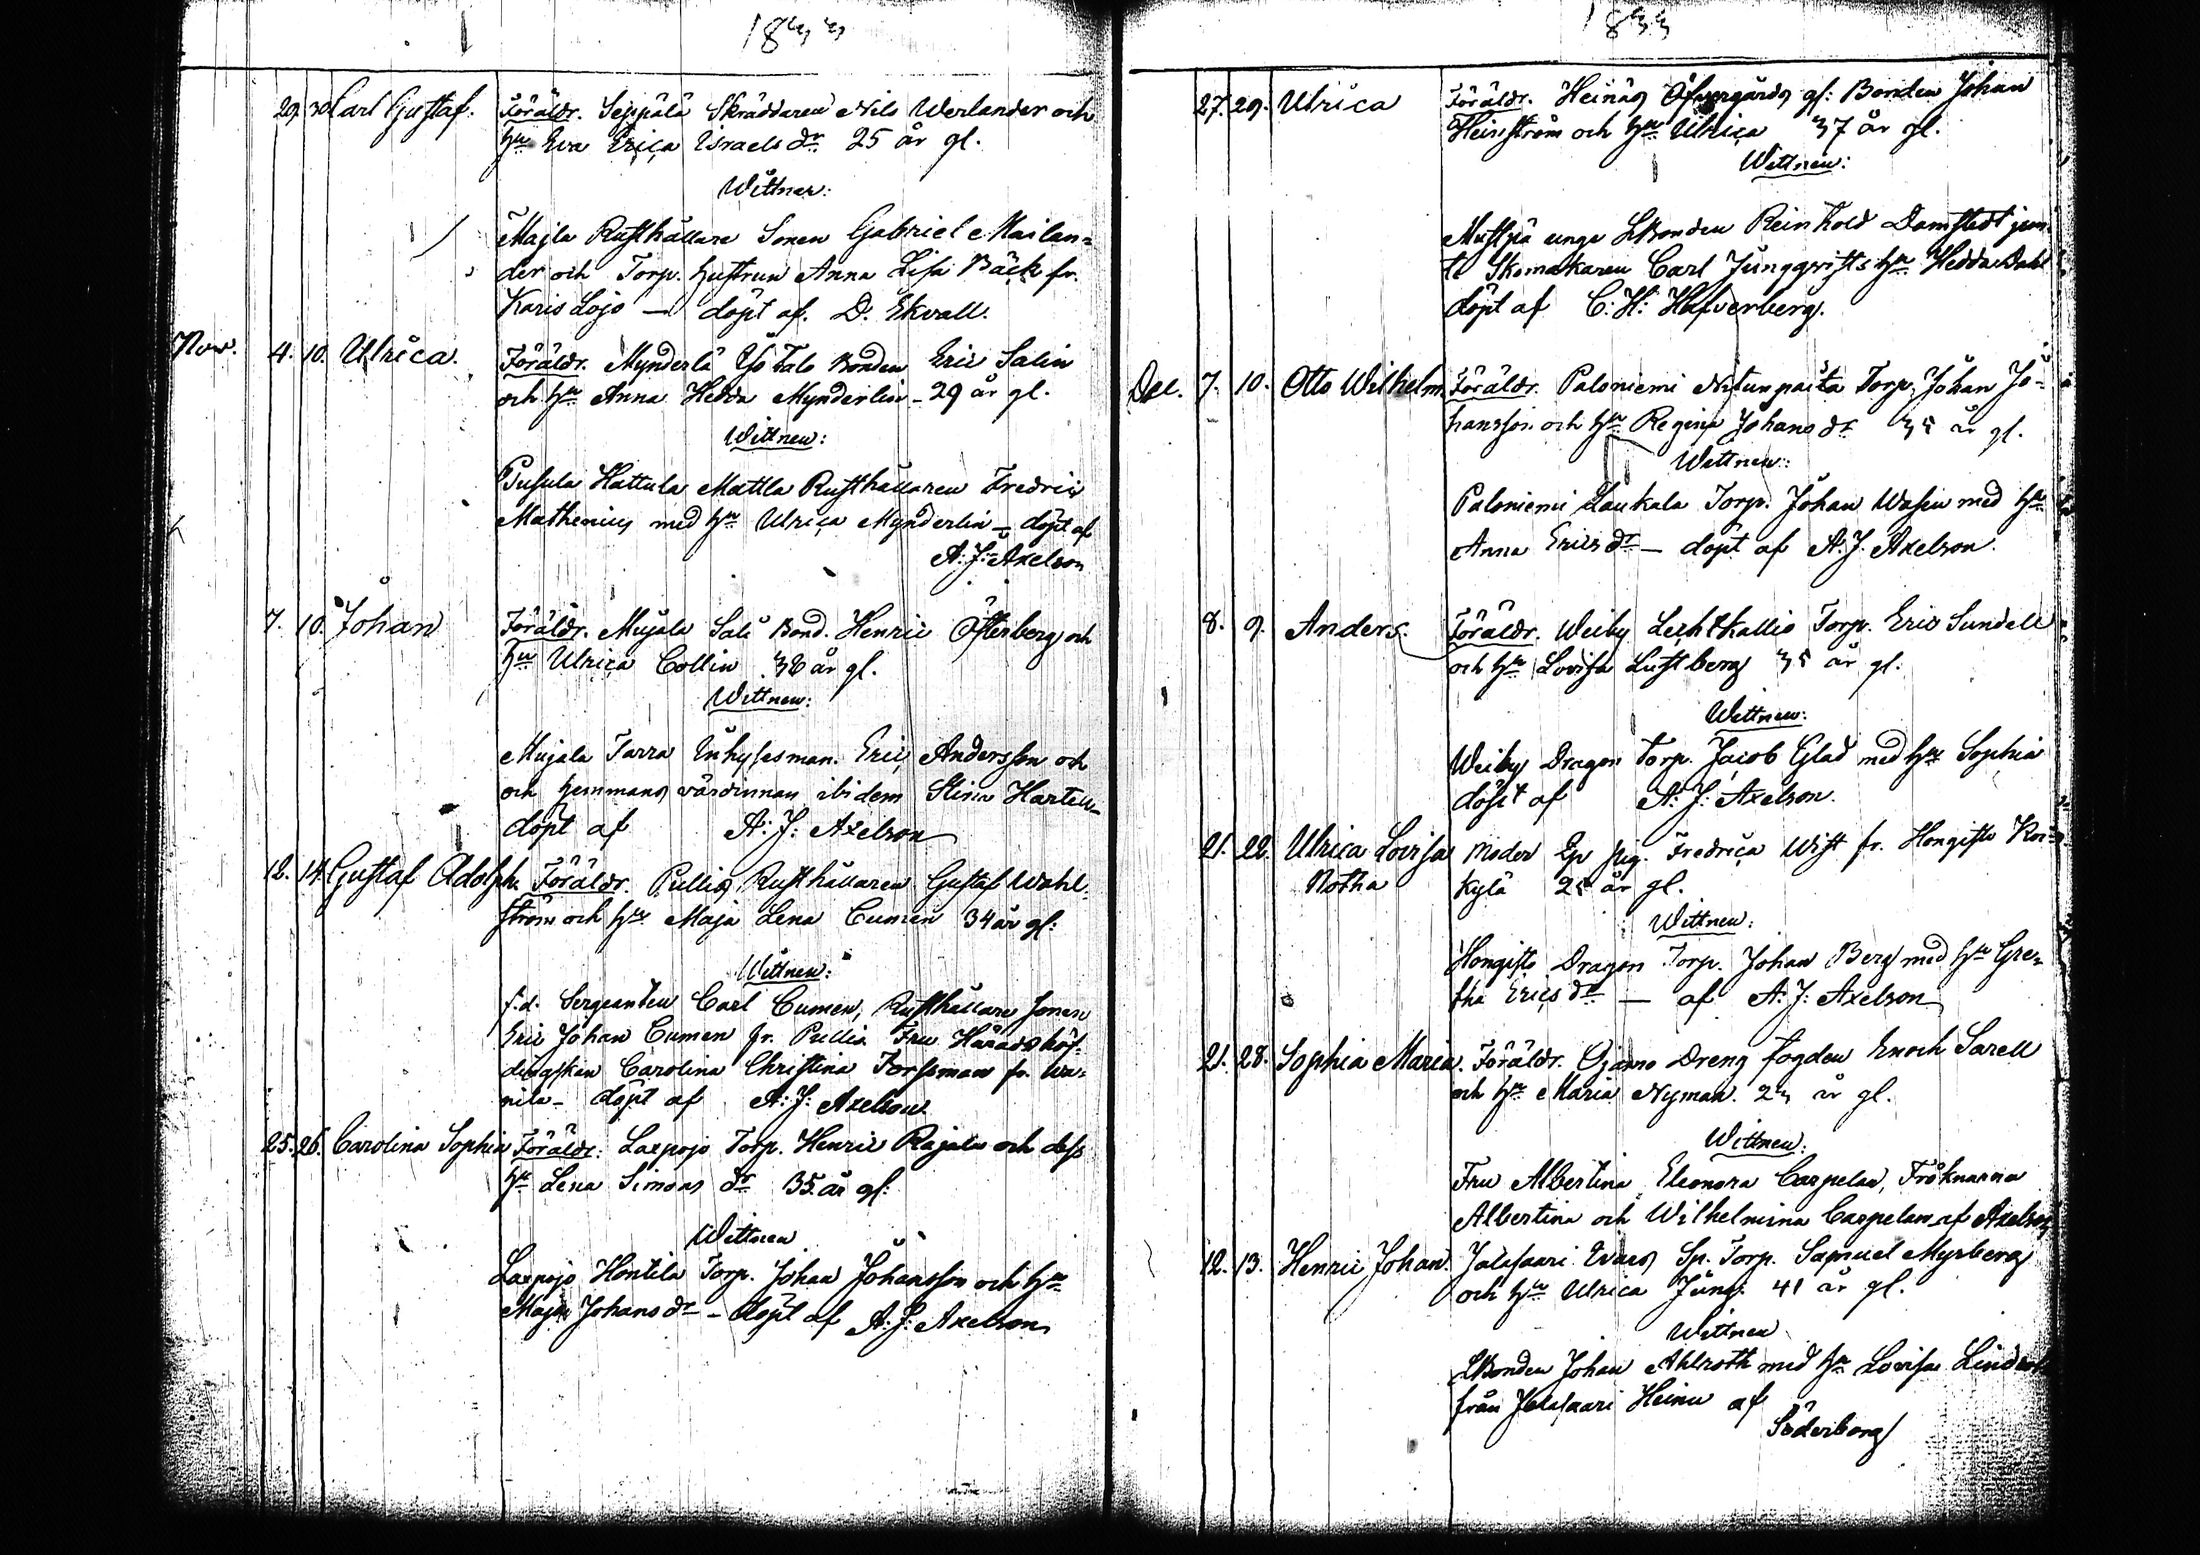 1833
29. 30. Carl Gustaf. Föräldr. Seppälä Skräddaren Nils Werlander och
hu Eva Erica Israelsdr 25 år gl.
Wittnen:
Majla Rusthållare Sonen Gabriel Mailan=
der och Torp. hustrun Anna Lisa Bäck fr.
Karis Lojo — döpt af. D. Ekvall.
Nov. 4. 10. Ulrica. Föräldr. Mynderlä Yso Talo Bonden Eric Salin
och hu Anna Hedda Mynderlin – 29 år gl.
Wittnen:
Pusula Hattula Mattla Rusthållaren Fredric
Mathenius med hu Ulrica Mynderlin – döpt af
A: J: Axelson
7. 10. Johan Föräldr. Mujala Sali Bond. Henric Österberg och
hu Ulrica Collin 38 år gl.
Wittnen:
Mujala Tarra Inhysesman. Eric Andersson och
och hemmans värdinnan ibidem Stina Harten
döpt af A: J: Axelson
12. 14. Gustaf Adolph. Föräldr. Pullis Rusthållaren Gustaf Wahl
ström och hu Maja Lena Cumen 34 år gl:
Wittnen:
f.d. Sergeanten Carl Cumen, Rusthållare Sonen
Eric Johan Cumen fr. Pullis Fru Häradshöf-
dingskan Carolina Christina Forssman fr.
döpt af A: J: Axelson
25. 26. Carolina Sophia Föräldr. Laxpojo Torp. Henric Rajala och dess
hu Lena Simons dr 35 år gl:
Wittnen
Laxpojo Hontila Torp. Johan Johansson och hu
Maja Johans dr – döpt af A: J: Axelson
1833
27. 29. Ulrica Föräldr. Heinäs Öfvergårds gl: Bonden Johan
Heinström och hu Ulrica 37 år gl.
Wittnen:
Mustpä unge LBonden Reinhold Damstedt jem
te Skomakaren Carl Jungqvists hu Hedda Dahl
döpt af C: H: Hafverberg.
Dec. 7. 10. Otto Wilhelm Föräldr. Paloniemi Torp. Johan Jo=
hansson och hu Regina Johans dr 35 år gl.
Wittnen:
Paloniemi Laukala Torp. Johan Wasen med hu
Anna Erics dr — döpt af A. J. Axelson.
8. 9. Anders. Föräldr. Weiby Lechtkallio Torp. Eric Sundell
och hu Lovisa Lustberg 35 år gl:
Wittnen:
Weiby Dragon Torp. Jacob Glad med hu Sophia
döpt af A: J: Axelson.
21. 22. Ulrica Lovisa Moder Ep pig. Fredrica Wist fr. Hongisto
Notha kylä 25 år gl.
Wittnen:
Hongisto Dragon Torp. Johan Berg med hu Gre=
tha Erics dr — af A: J: Axelson
21. 28. Sophia Maria. Föräldr. Ojamo Dreng fogden Enoch Sarell
och hu Maria Nyman. 23 år gl.
Wittnen:
Fru Albertina Eleonora Carpelan, Fröknarna
Albertina och Wilhelmina Carpelan af Axelson
12. 13. Henric Johan. Jalasaari Sp. Torp. Samuel Myrberg
och hu Ulrica Jung. 41 år gl.
Wittnen
LBonden Johan Ahlroth med hu Lovisa
från Jalasaari Heinu af
Söderborg